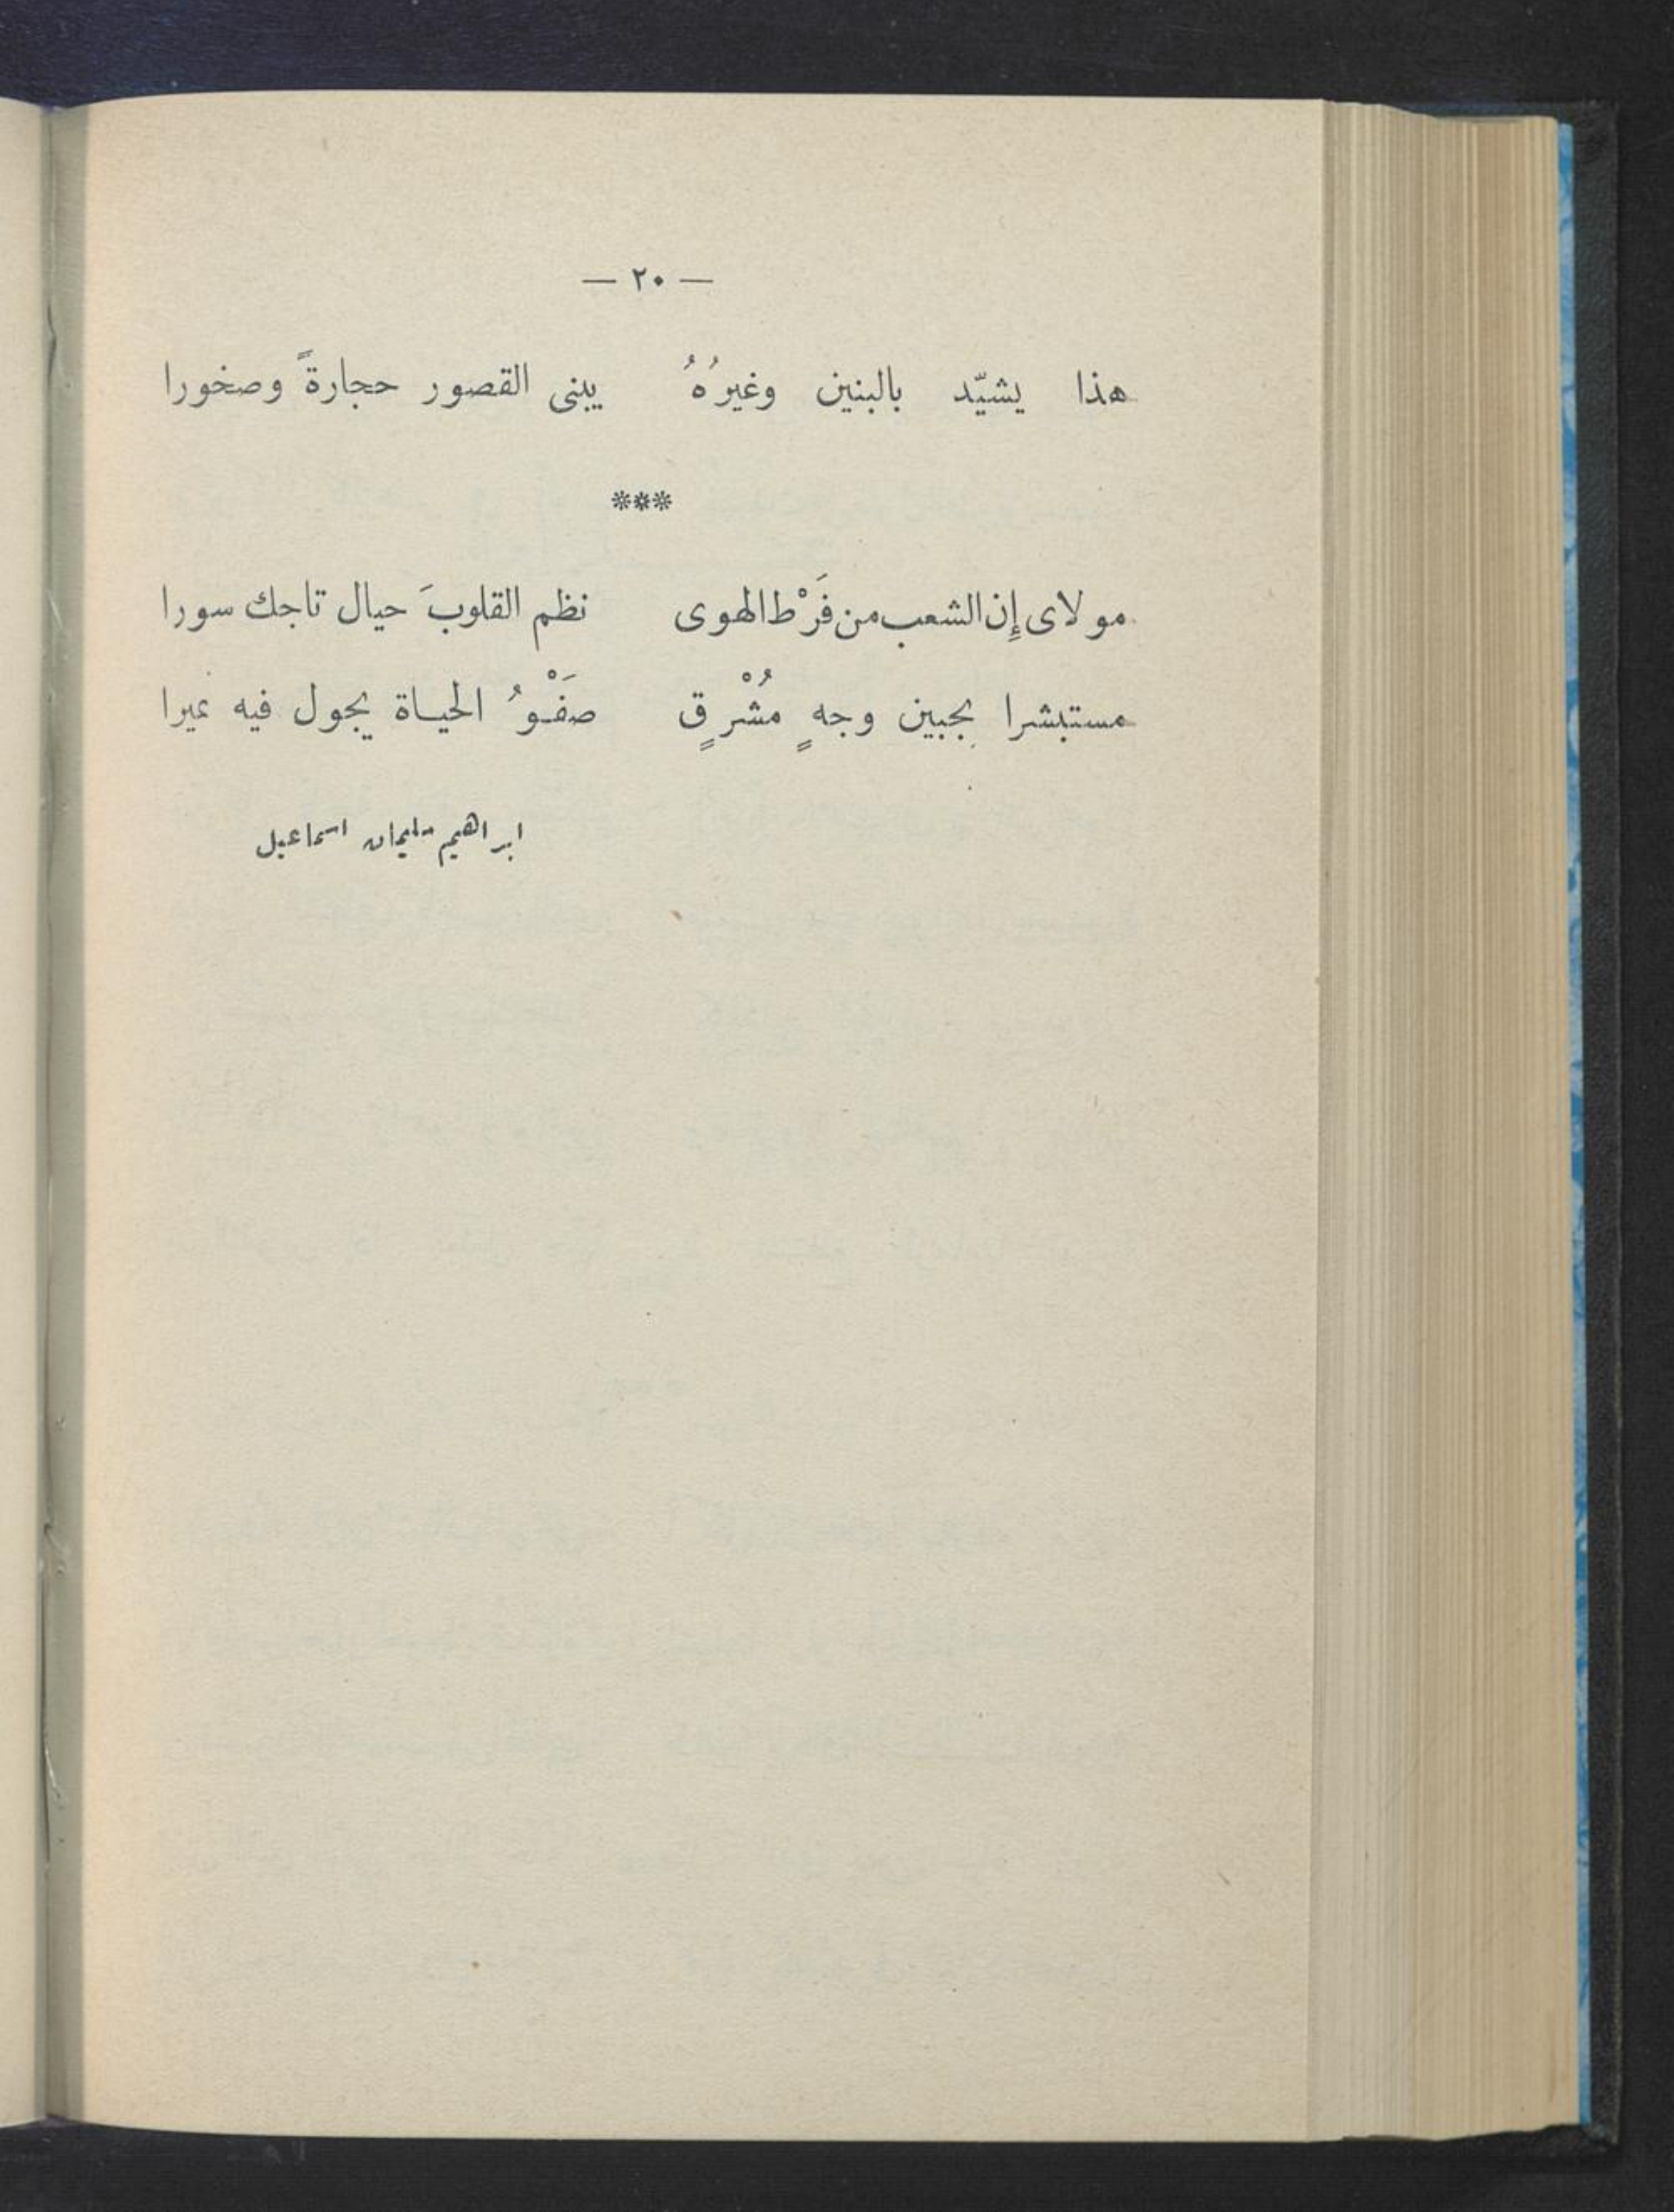 — ٢٠ —
هذا يشيّد بالبنين وغيرُهُ يبنى القصور حجارةً وصخورا
***
مولاى إِن الشعب من فَرْط الهوى نظم القلوبَ حيال تاجك سورا
مستبشرا بجبين وجهٍ مُشْرقٍ صَفْوُ الحياة يجول فيه نميرا
ابراهيم سليمان اسماعيل